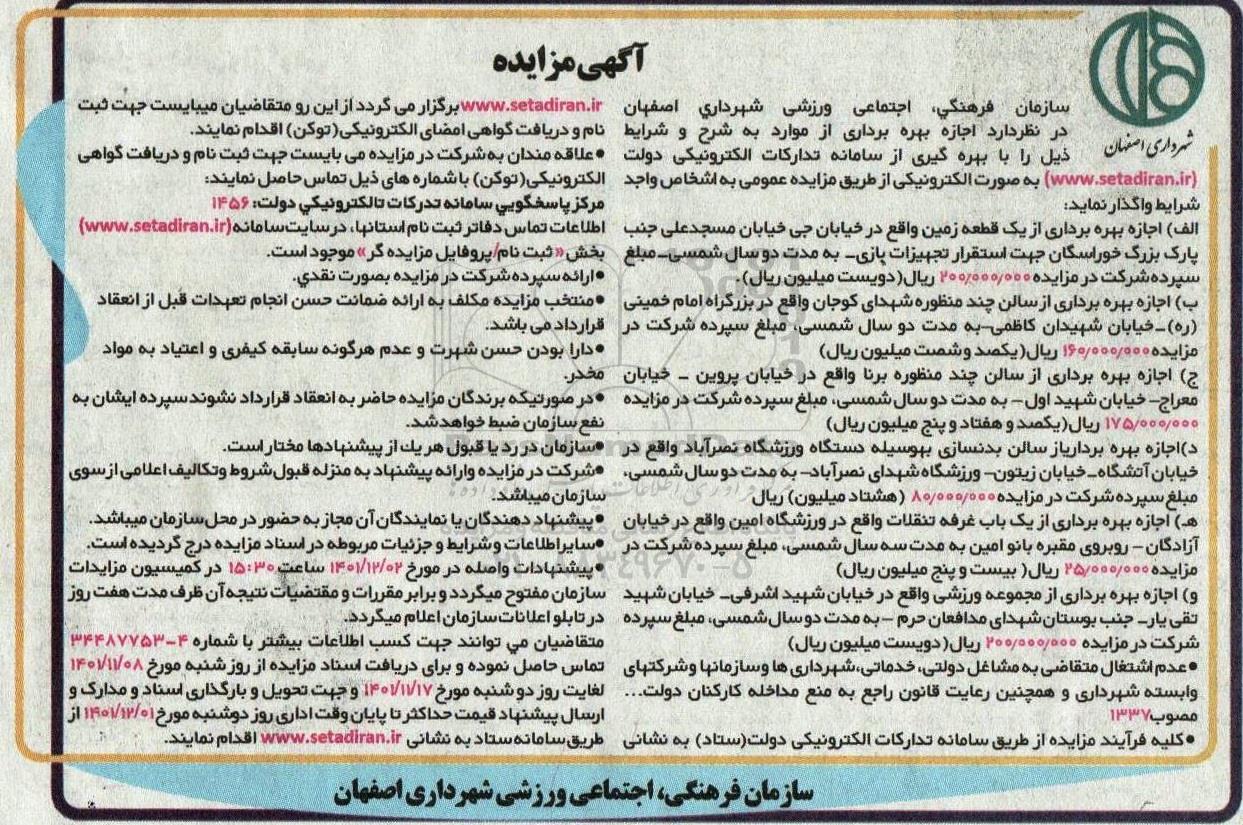 آگهی مزایده
شهرداری اصفهان
سازمان فرهنگي، اجتماعی ورزشی شهرداري اصفهان
در نظردارد اجازه بهره برداری از موارد به شرح و شرایط
ذیل را با بهره گیری از سامانه تدارکات الکترونیکی دولت
(www.setadiran.ir) به صورت الکترونیکی از طریق مزایده عمومی به اشخاص واجد
شرایط واگذار نماید:
الف) اجازه بهره برداری از یک قطعه زمین واقع در خیابان جی خیابان مسجدعلی جنب
پارک بزرگ خوراسگان جهت استقرار تجهیزات بازی– به مدت دو سال شمسی–مبلغ
سپرده شرکت در مزایده ۲۰۰/۰۰۰/۰۰۰ ریال(دویست میلیون ریال)
ب) اجازه بهره برداری از سالن چند منظوره شهدای کوجان واقع در بزرگراه امام خمینی
(ره)–خیابان شهیدان کاظمی–به مدت دو سال شمسی، مبلغ سپرده شرکت در
مزایده ۱۶۰/۰۰۰/۰۰۰ ریال(یکصد وشصت میلیون ریال)
ج) اجازه بهره برداری از سالن چند منظوره برنا واقع در خیابان پروین – خیابان
معراج– خیابان شهید اول– به مدت دو سال شمسی، مبلغ سپرده شرکت در مزایده
۱۷۵/۰۰۰/۰۰۰ ریال(یکصد و هفتاد و پنج میلیون ریال)
د)اجازه بهره بردارياز سالن بدنسازی بهوسیله دستگاه ورزشگاه نصرآباد واقع در
خیابان آتشگاه–خیابان زیتون– ورزشگاه شهدای نصرآباد– به مدت دو سال شمسی،
مبلغ سپرده شرکت در مزایده ۸۰/۰۰۰/۰۰۰ (هشتاد میلیون) ریال
هـ) اجازه بهره برداری از یک باب غرفه تنقلات واقع در ورزشگاه امین واقع در خیابان
آزادگان – روبروی مقبره بانو امین به مدت سه سال شمسی، مبلغ سپرده شرکت در
مزایده ۲۵/۰۰۰/۰۰۰ ریال( بیست و پنج میلیون ریال)
و) اجازه بهره برداری از مجموعه ورزشی واقع در خیابان شهید اشرفی– خیابان شهید
تقی یار– جنب بوستان شهدای مدافعان حرم –به مدت دو سال شمسی، مبلغ سپرده
شرکت در مزایده ۲۰۰/۰۰۰/۰۰۰ ریال(دویست میلیون ریال)
●عدم اشتغال متقاضی به مشاغل دولتی، خدماتی،شهرداری ها وسازمانها و شرکتهای
وابسته شهرداری و همچنین رعایت قانون راجع به منع مداخله کارکنان دولت...
مصوب۱۳۳۷
●کلیه فرآیند مزایده از طریق سامانه تدارکات الکترونیکی دولت(ستاد) به نشانی
www.setadiran.ir برگزار می گردد از این رو متقاضیان میبایست جهت ثبت
نام و دریافت گواهی امضای الکترونیکی(توکن) اقدام نمایند.
●علاقه مندان به شرکت در مزایده می بایست جهت ثبت نام و دریافت گواهی
الکترونیکی(توکن) با شماره های ذیل تماس حاصل نمایند:
مرکز پاسخگويي سامانه تدرکات تالکترونيکي دولت: ۱۴۵۶
اطلاعات تماس دفاتر ثبت نام استانها، در سایت سامانه(www.setadiran.ir)
بخش «ثبت نام/پروفایل مزایده گر» موجود است.
●ارائه سپرده شرکت در مزایده بصورت نقدي.
●منتخب مزایده مکلف به ارائه ضمانت حسن انجام تعهدات قبل از انعقاد
قرارداد می باشد.
●دارا بودن حسن شهرت و عدم هرگونه سابقه کیفری و اعتیاد به مواد
مخدر.
●در صورتیکه برندگان مزایده حاضر به انعقاد قرارداد نشوند سپرده ایشان به
نفع سازمان ضبط خواهد شد.
●سازمان در رد یا قبول هر یك از پیشنهادها مختار است.
●شرکت در مزایده وارائه پیشنهاد به منزله قبول شروط وتکالیف اعلامی از سوی
سازمان میباشد.
●پیشنهاد دهندگان یا نمایندگان آن مجاز به حضور در محل سازمان میباشد.
●سایر اطلاعات و شرایط و جزئیات مربوطه در اسناد مزایده درج گردیده است.
●پیشنهادات واصله در مورخ ۱۴۰۱/۱۲/۰۲ ساعت ۱۵:۳۰ در کمیسیون مزایدات
سازمان مفتوح میگردد و برابر مقررات و مقتضیات نتیجه آن ظرف مدت هفت روز
در تابلو اعلانات سازمان اعلام میگردد.
متقاضیان مي توانند جهت کسب اطلاعات بیشتر با شماره ۴–۳۴۴۸۷۷۵۳
تماس حاصل نموده و برای دریافت اسناد مزایده از روز شنبه مورخ ۱۴۰۱/۱۱/۰۸
لغایت روز دوشنبه مورخ ۱۴۰۱/۱۱/۱۷ و جهت تحویل و بارگذاری اسناد و مدارک و
ارسال پیشنهاد قیمت حداکثر تا پایان وقت اداری روز دوشنبه مورخ ۱۴۰۱/۱۲/۰۱ از
طریق سامانه ستاد به نشانی www.setadiran.ir اقدام نمایند.
سازمان فرهنگی، اجتماعی ورزشی شهرداری اصفهان